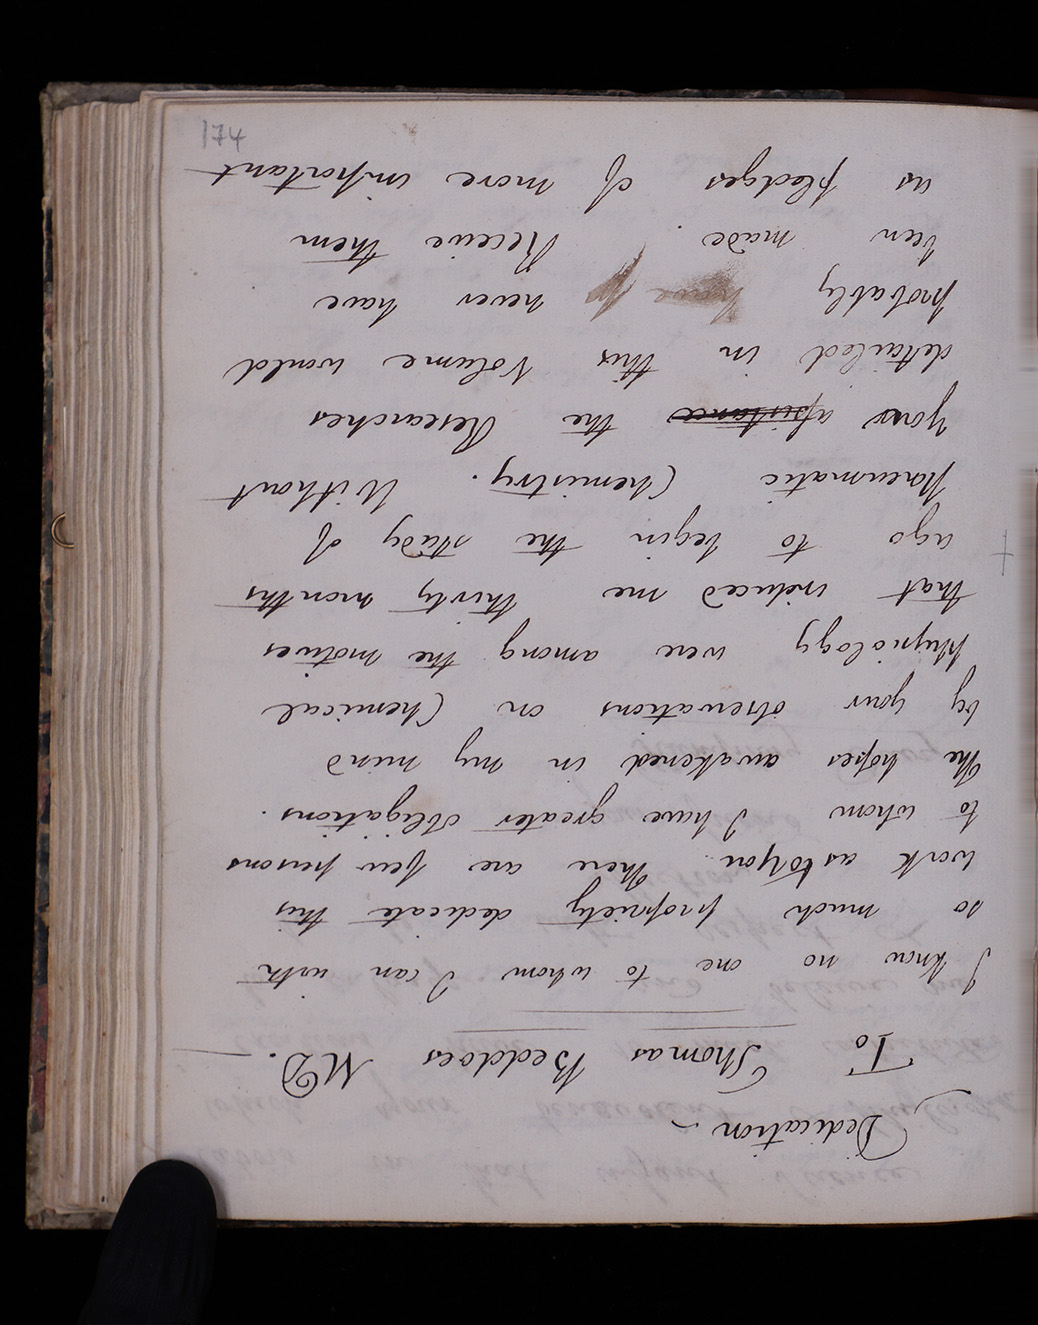 Dedication
To Thomas Beddoes MD.
I know no one to whom I can with
so much propriety dedicate this
work as to you. There are few persons
to whom I have greater obligations.
The hopes awakened in my mind
by your observations on Chemical
Physiology were among the motives
that induced me thirty months
ago to begin the study of
Pneumatic Chemistry. Without
your assistance the Researches
detailed in this Volume would
probably never have
been made. Receive them
as pledges of more important
174